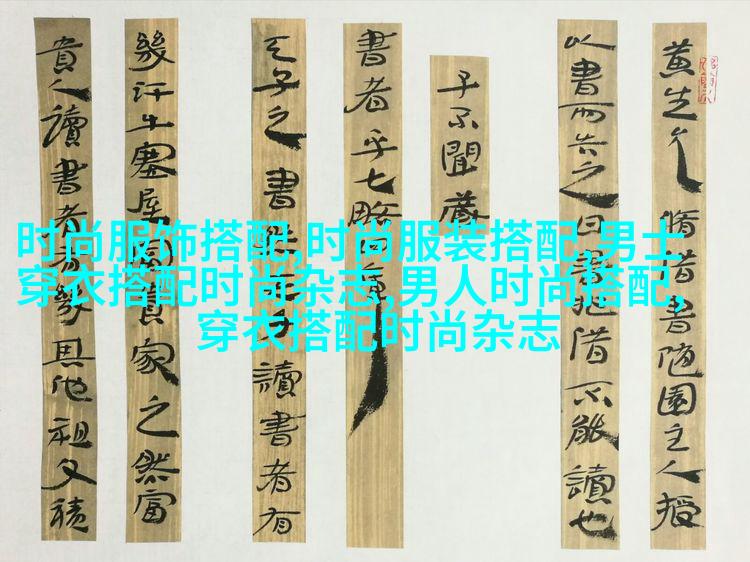 黄生允脩借書隨園主人授
以書而告之曰書非借不能讀也
子不聞藏
書者乎七略四庫
天子之書然天子讀書者有
幾汗牛塞屋富貴家之然富
貴人讀書者有幾其他祖父積
时尚服饰搭配,时尚服装搭配,男士
穿衣搭配时尚杂志,男人时尚搭配,
穿衣搭配时尚杂志